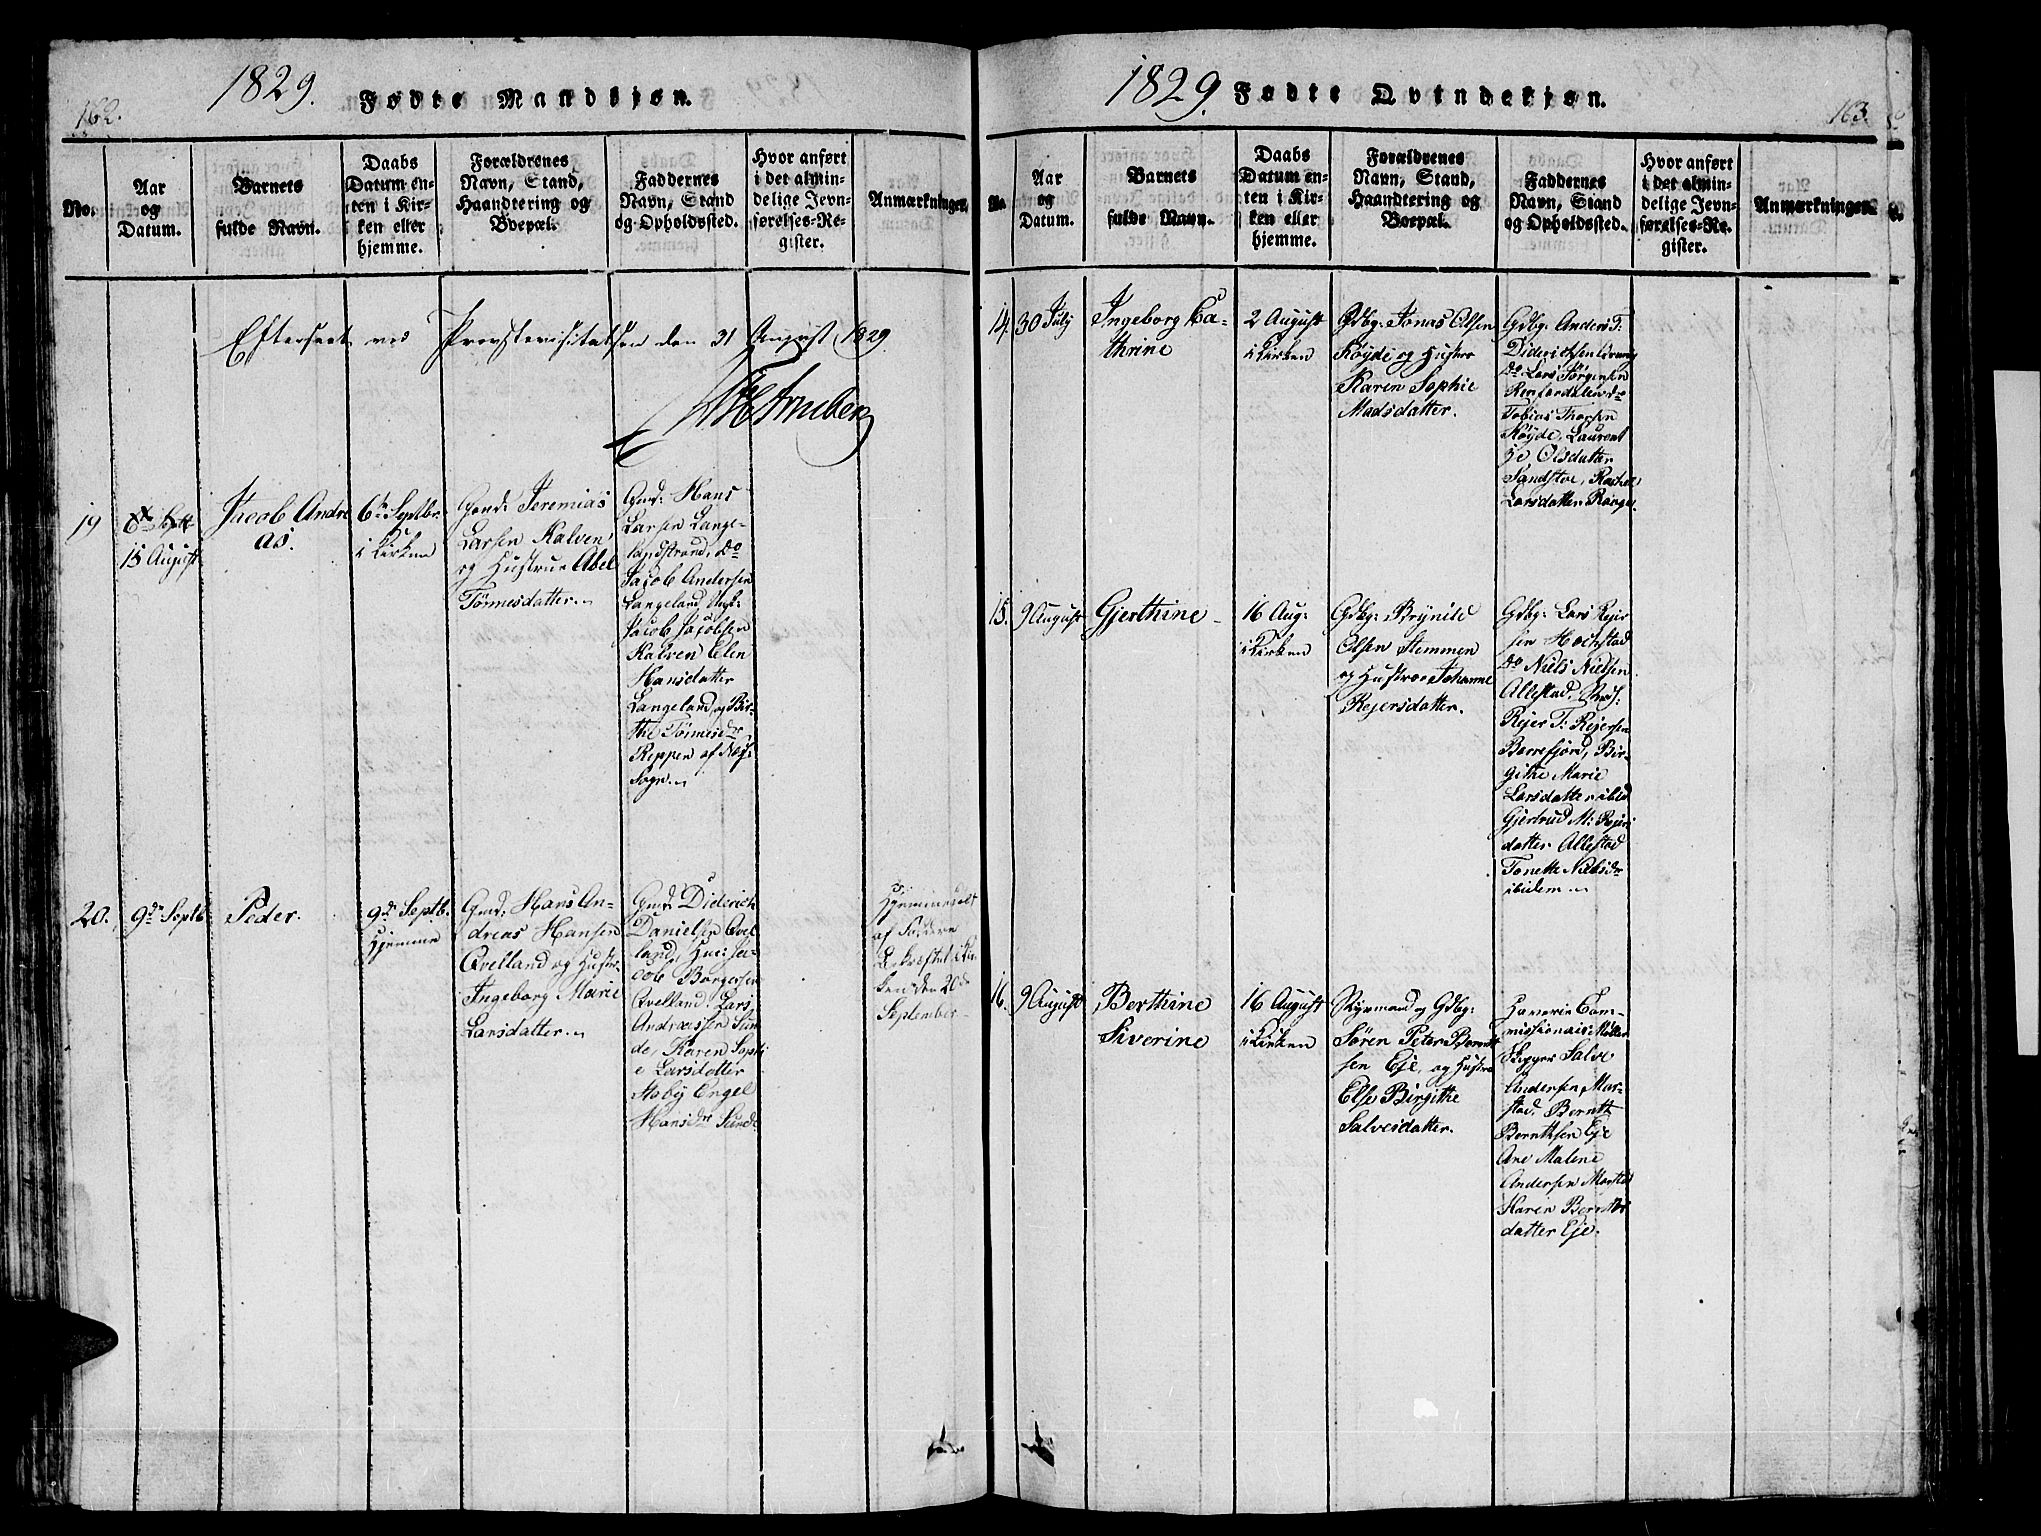 162.
1829. Fødte Mandkjøn.
No.
Aar
og
Datum.
Barnets
fulde Navn.
Daabs
Datum en-
ten i Kir-
ken eller
hjemme.
Forældrenes
Navn, Stand,
Haandtering og
Boepæl.
Faddernes
Navn, Stand
og Opholdssted.
Hvor anført
i det almin-
delige Jevn-
førelses-Re-
gister.
Anmærkninger.
Efterseet ved Provstevisitatsen den 31 August 1829.
19
15 August
Jacob Andre
as.
6te Septbr.
i Kirken
Gmd: Jeremias
Larsen Kalven,
og Hustrue Abel
Tönnesdatter.
Gmd: Hans
Larsen Lange-
landstrand, do
Jacob Andersen
Langeland,
Jacob Jacobsen
Kalven Elen
Hansdatter
Langeland, og Bir-
the Tönnesdr
Reppen af Næss
Sogn.
20.
9de Septb
Peder.
9de Septb.
Hjemme
Gmd: Hans An-
dreas Hansen
Qvelland og Hustr.
Ingeborg Marie
Larsdatter.
Gmd: Diderich
Danielsen Qvel
land, Huus: Ja-
cob Börgesen
Qvelland. Lars
Andreassen Sun
de, Karen Sophi
e Larsdatter
Støby Engel
Hansdr Sunde
Hjemmedøbt
af Fadere
Bekræftet i Kir
ken den 20de
September
1829. Fødte Qvindekjøn.
163.
No.
Aar
og
Datum.
Barnets
fulde Navn.
Daabs
Datum en-
ten i Kir-
ken eller
hjemme.
Forældrenes
Navn, Stand,
Haandtering og
Boepæl.
Faddernes
Navn, Stand
og Opholdssted.
Hvor anført
i det almin-
delige Jevn-
førelses-Re-
gister.
Anmærkninger.
14.
30 July
Ingeborg Ca-
thrine
2 August
i Kirken
Gdbg: Jonas Olsen
Röyde og Hustro
Karen Sophie
Madsdatter.
Gdbg: Anders T:
Diderichsen
do Lars Jörgensen
Tobias Thorsen
Röyde, Laurent
ze Olsdatter
Sandstøe, Rachel
Larsdatter
15.
9 August
Gjerthine
16 Aug:
i Kirken
Gdbg: Brynild
Olsen Stemmen
og Hustroe Johanne
Rejersdatter.
Gdbg: Lars Rejer
sen Hochstad
do Niels Nielsen
Allestad,
Rejer T: Rejersen
Børrefjord, Bir-
githe Marie
Larsdatter ibid
Gjertrud M: Rejers
datter Allestad
Tonette Nielsdr
ibidem
16.
9 August
Berthine
Siverine
16 August
i Kirken
Styrmand og Gdbg:
Sören Peter Bernt
sen Eje, og Hustro
Else Birgithe
Salvesdatter.
Havarie Com-
missionair Möller
Skipper Salve
Andersen Mar-
stad. Bernth
Bernthsen Eje
Ane Malene
Andersen Marstad
Karen Bernths
datter Eje.